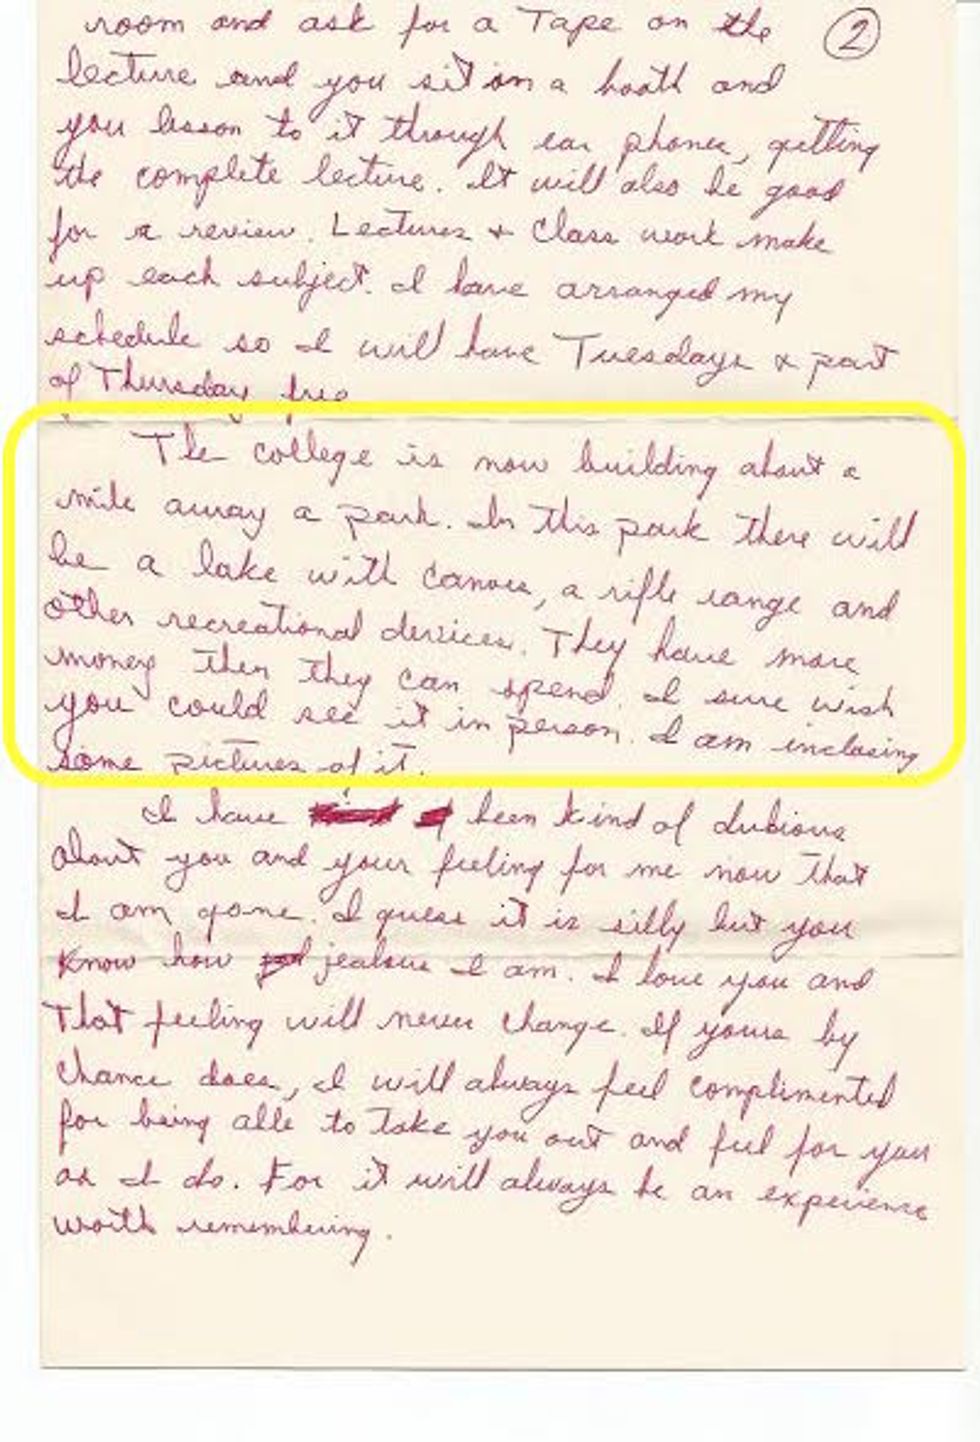 room and ask for a Tape on the
②
lecture and you sit in a booth and
you lesson to it through ear phones, getting
the complete lecture. It will also be good
for a review. Lectures + Class work make
up each subject. I have arranged my
schedule so I will have Tuesdays & part
of Thursday free
The college is now building about a
mile away a park. In this park there will
be a lake with canoes, a rifle range and
other recreational devices. They have more
money then they can spend. I sure wish
you could see it in person. I am inclosing
some pictures of it.
I have been kind of dubious
about you and your feeling for me now that
I am gone. I guess it is silly but you
know how jealous I am. I love you and
that feeling will never change. If yours by
chance does, I will always feel complimented
for being able to take you out and feel for you
as I do. For it will always be an experience
worth remembering.